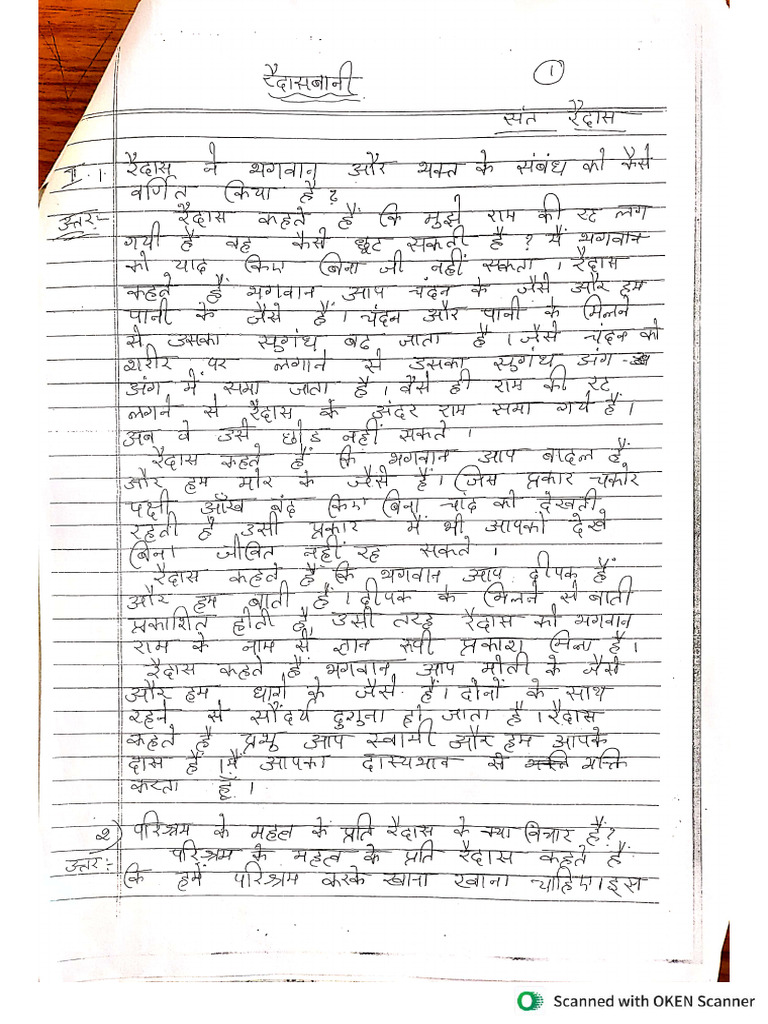 रैदासबानी
1
संत रैदास
I. 1. रैदास ने भगवान और भक्त के संबंध को कैसे
वर्णित किया है?
उत्तर:- रैदास कहते हैं कि मुझे राम की रट लग
गयी है वह कैसे छूट सकती है? मैं भगवान
को याद किए बिना जी नहीं सकता। रैदास
कहते हैं भगवान आप चंदन के जैसे और हम
पानी के जैसे हैं। चंदन और पानी के मिलने
से उसका सुगंध बढ जाता है। जैसे चंदन को
शरीर पर लगाने से उसका सुगंध अंग-
अंग में समा जाता है। वैसे ही राम की रट
लगने से रैदास के अंदर राम समा गये हैं।
अब वे उसे छोड नहीं सकते।
रैदास कहते हैं कि भगवान आप बादल हैं
और हम मोर के जैसे हैं। जिस प्रकार चकोर
पक्षी आँख बंद किए बिना चांद को देखती
रहती है उसी प्रकार मैं भी आपको देखे
बिना जीवित नहीं रह सकते।
रैदास कहते हैं कि भगवान आप दीपक हैं
और हम बाती हैं। दीपक के मिलने से बाती
प्रकाशित होती है, उसी तरह रैदास को भगवान
राम के नाम से ज्ञान रूपी प्रकाश मिला है।
रैदास कहते हैं भगवान आप मोती के जैसे
और हम धागे के जैसे हैं। दोनों के साथ
रहने से सौंदर्य दुगुना हो जाता है। रैदास
कहते हैं प्रभु आप स्वामी और हम आपके
दास हैं। मैं आपका दास्यभाव से भक्ति
करता हूँ।
2) परिश्रम के महत्व के प्रति रैदास के क्या विचार हैं?
उत्तर:- परिश्रम के महत्व के प्रति रैदास कहते हैं
कि हमें परिश्रम करके खाना खाना चाहिए। इस
Scanned with OKEN Scanner